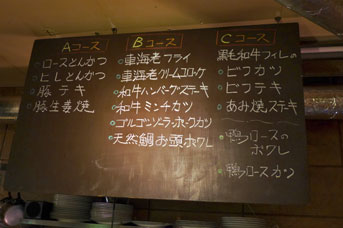 Aコース
ロースとんかつ
ヒレとんかつ
豚テキ
豚生姜焼
Bコース
車海老フライ
車海老クリームコロッケ
和牛ハンバーグ・ステーキ
和牛ミンチカツ
ゴルゴンゾーラ・ポークカツ
天然鯛お頭ポワレ
Cコース
黒毛和牛フィレの
ビフカツ
ビフテキ
あみ焼ステーキ
鴨ロースの
ポワレ
鴨ロースカツ